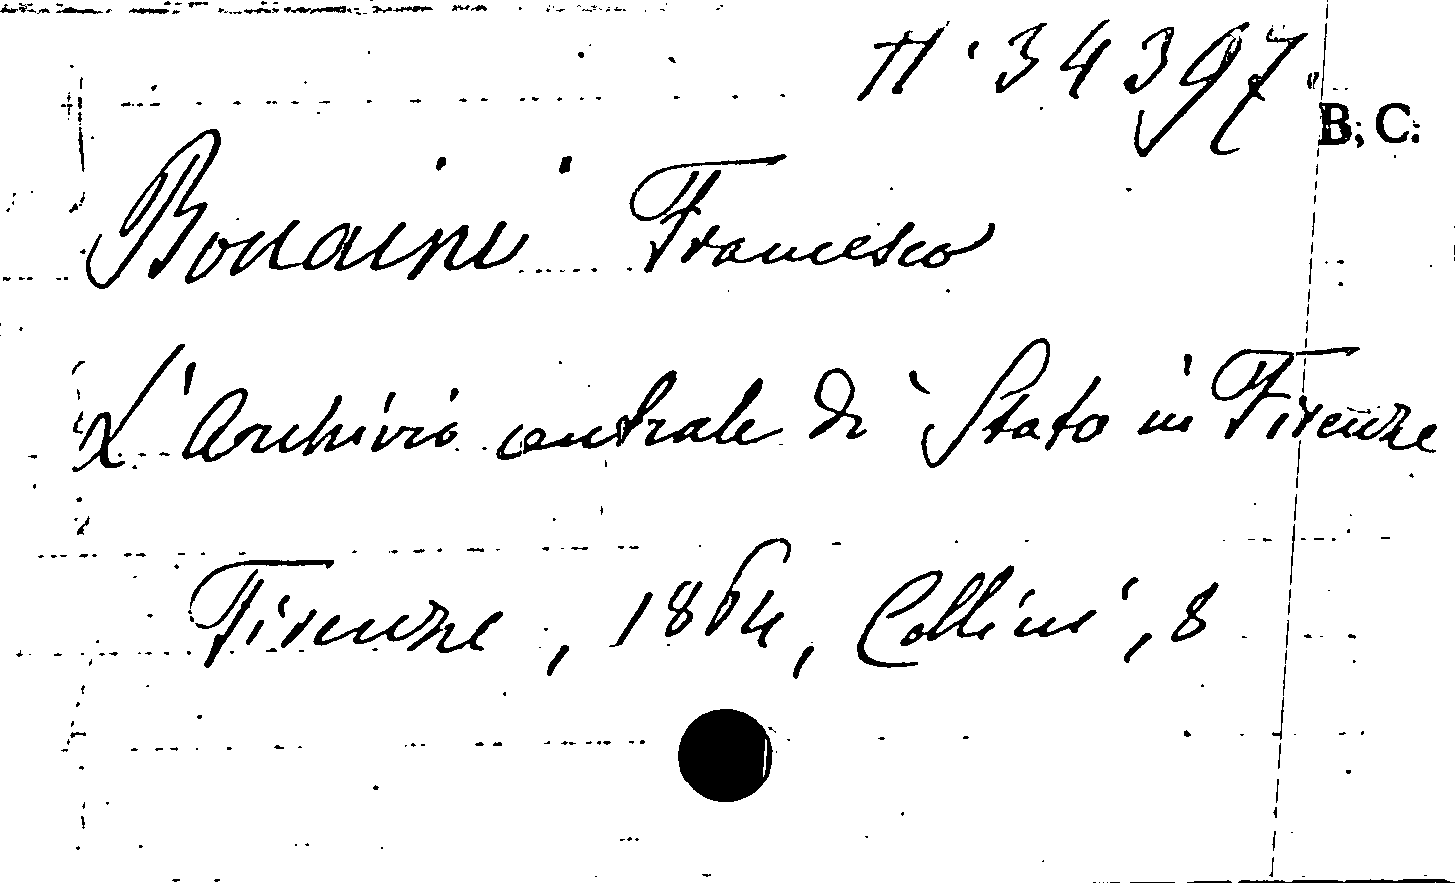 H. 34397.
B. C.
Bonaini Francesco
L'Archivio centrale di Stato in Firenze
Firenze, 1864, Cellini, 8